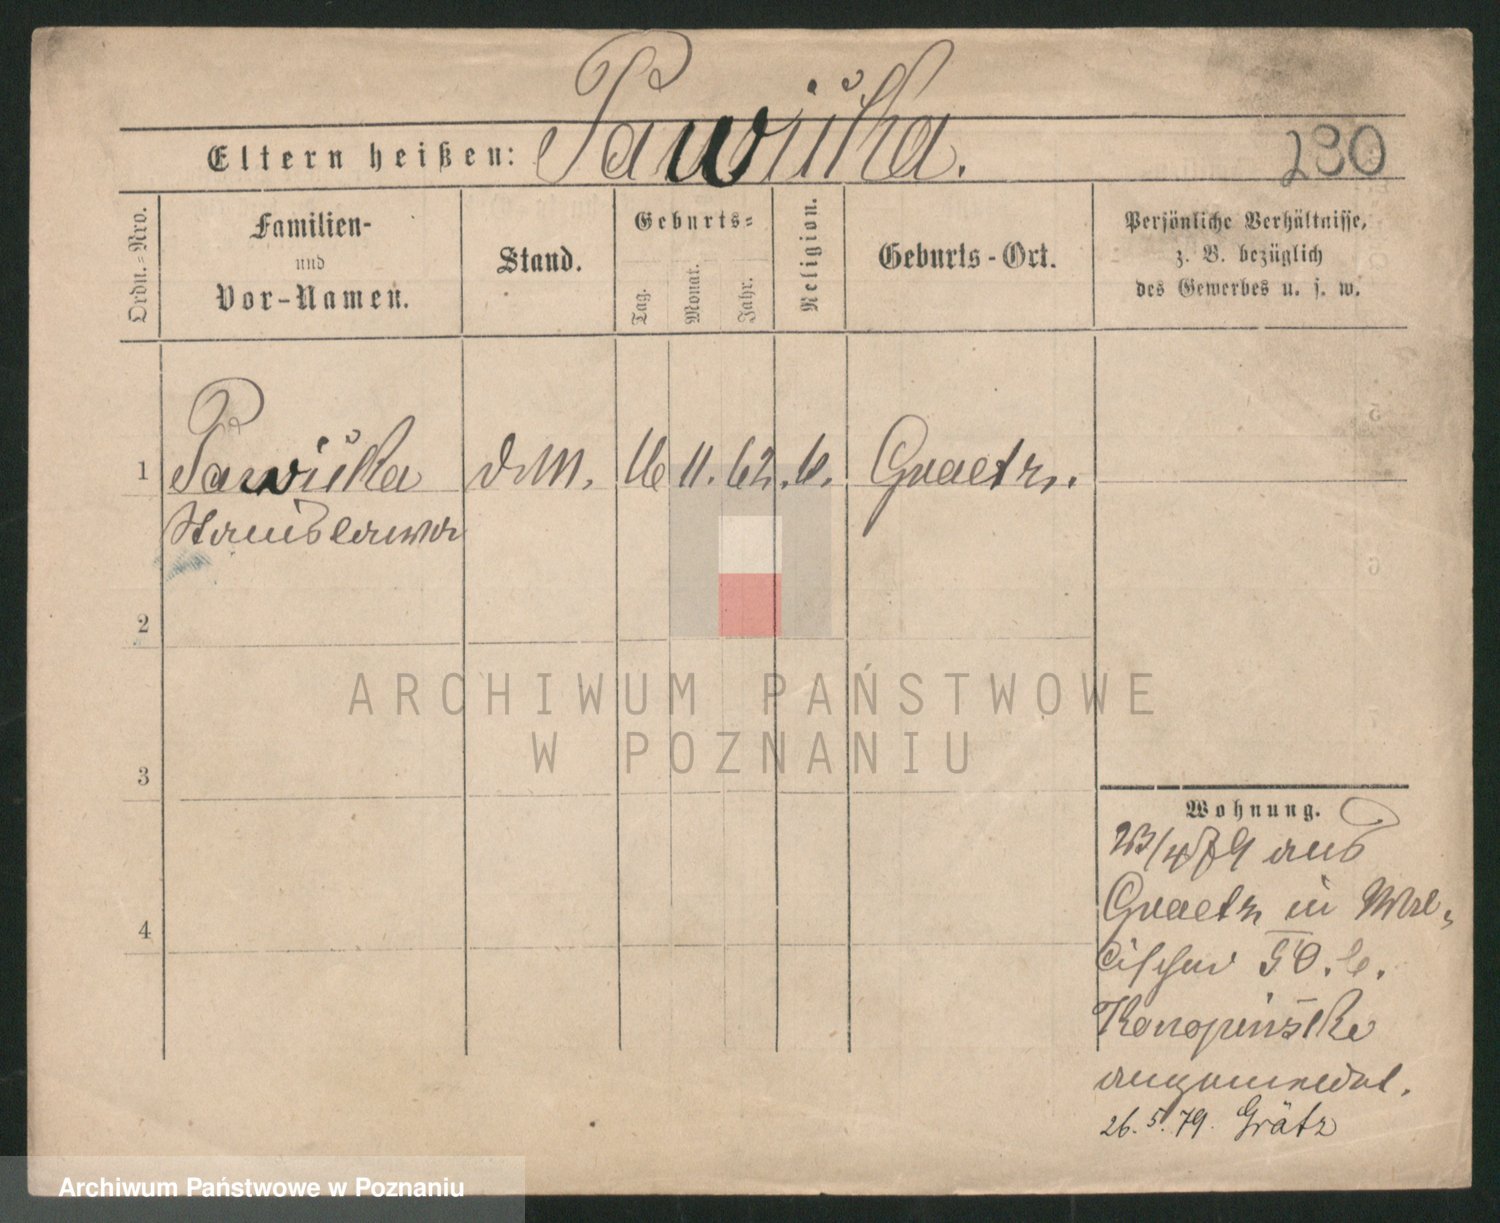 Eltern heißen: Pawiička. 230
Ordn.-Nro.
Familien-
und
Vor-Namen.
Stand.
Geburts-
Tag.
Monat.
Jahr.
Religion.
Geburts-Ort.
Persönliche Verhältnisse,
z. B. bezüglich
des Gewerbes u. s. w.
1 D.M. 16 11. 62. k. Graetz.
Stanislawa
2
3
4
ARCHIWUM PAŃSTWOWE
W POZNANIU
Wohnung.
23/4 79 aus
Graetz in
50. b.
angemeldet.
26. 5. 79. Grätz
Archiwum Państwowe w Poznaniu